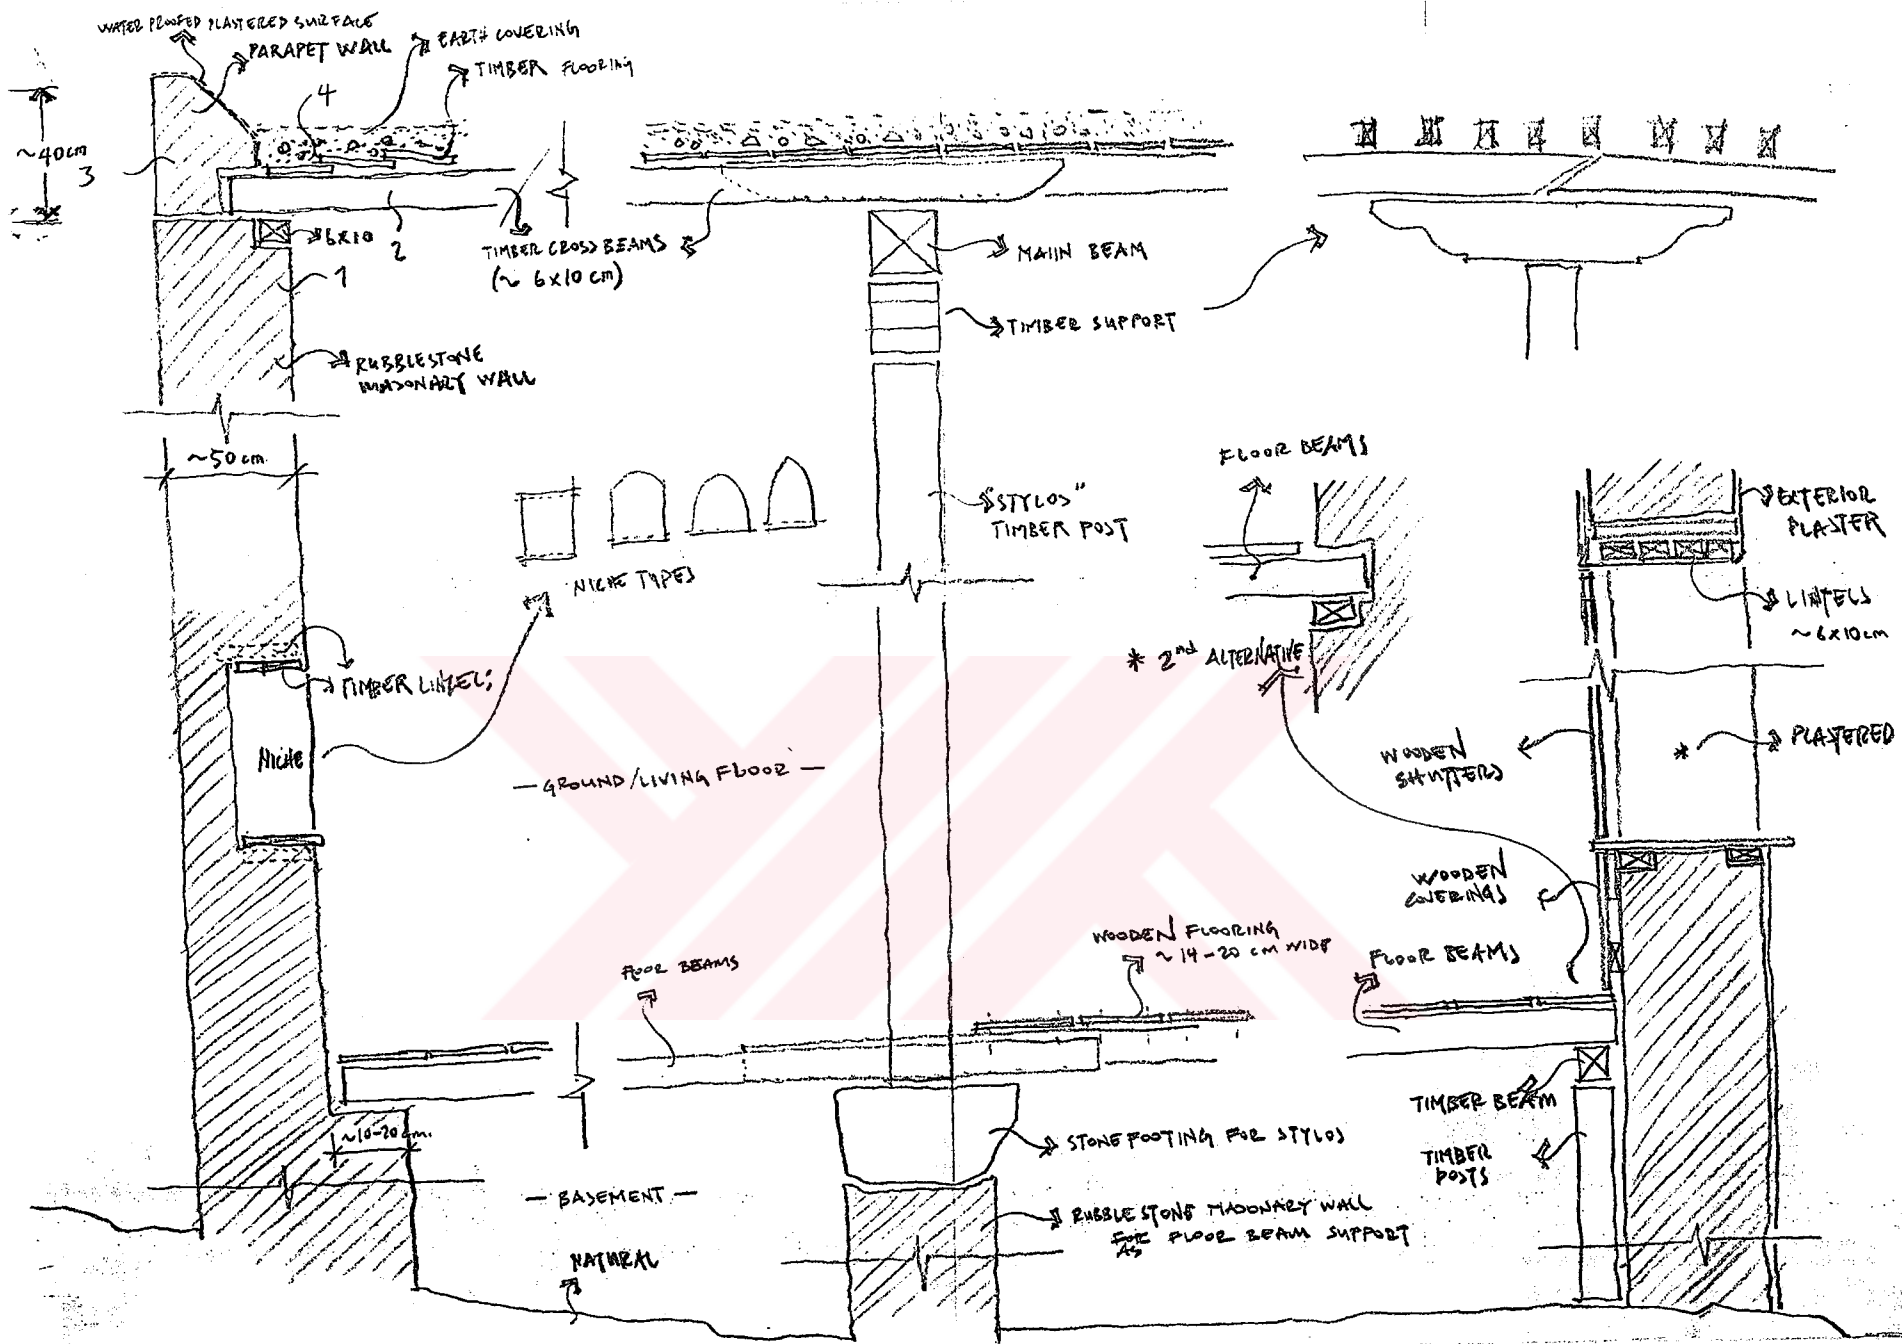 WATER PROOFED PLASTERED SURFACE
PARAPET WALL
EARTH COVERING
TIMBER FLOORING
4
~40cm
3
6x10
2
1
TIMBER CROSS BEAMS
(~ 6x10 cm)
MAIN BEAM
TIMBER SUPPORT
RUBBLESTONE
MASONARY WALL
~50 cm
NICHE TYPES
"STYLOS"
TIMBER POST
FLOOR BEAMS
* 2nd ALTERNATIVE
EXTERIOR
PLASTER
LINTELS
~ 6x10cm
TIMBER LINTELS
NICHE
— GROUND/LIVING FLOOR —
WOODEN
SHUTTERS
*
PLASTERED
WOODEN
COVERINGS
FLOOR BEAMS
WOODEN FLOORING
~ 14-20 cm WIDE
FLOOR BEAMS
TIMBER BEAM
TIMBER
POSTS
~10-20cm.
STONE FOOTING FOR STYLOS
— BASEMENT —
RUBBLESTONE MASONARY WALL
FOR FLOOR BEAM SUPPORT
AS
NATURAL